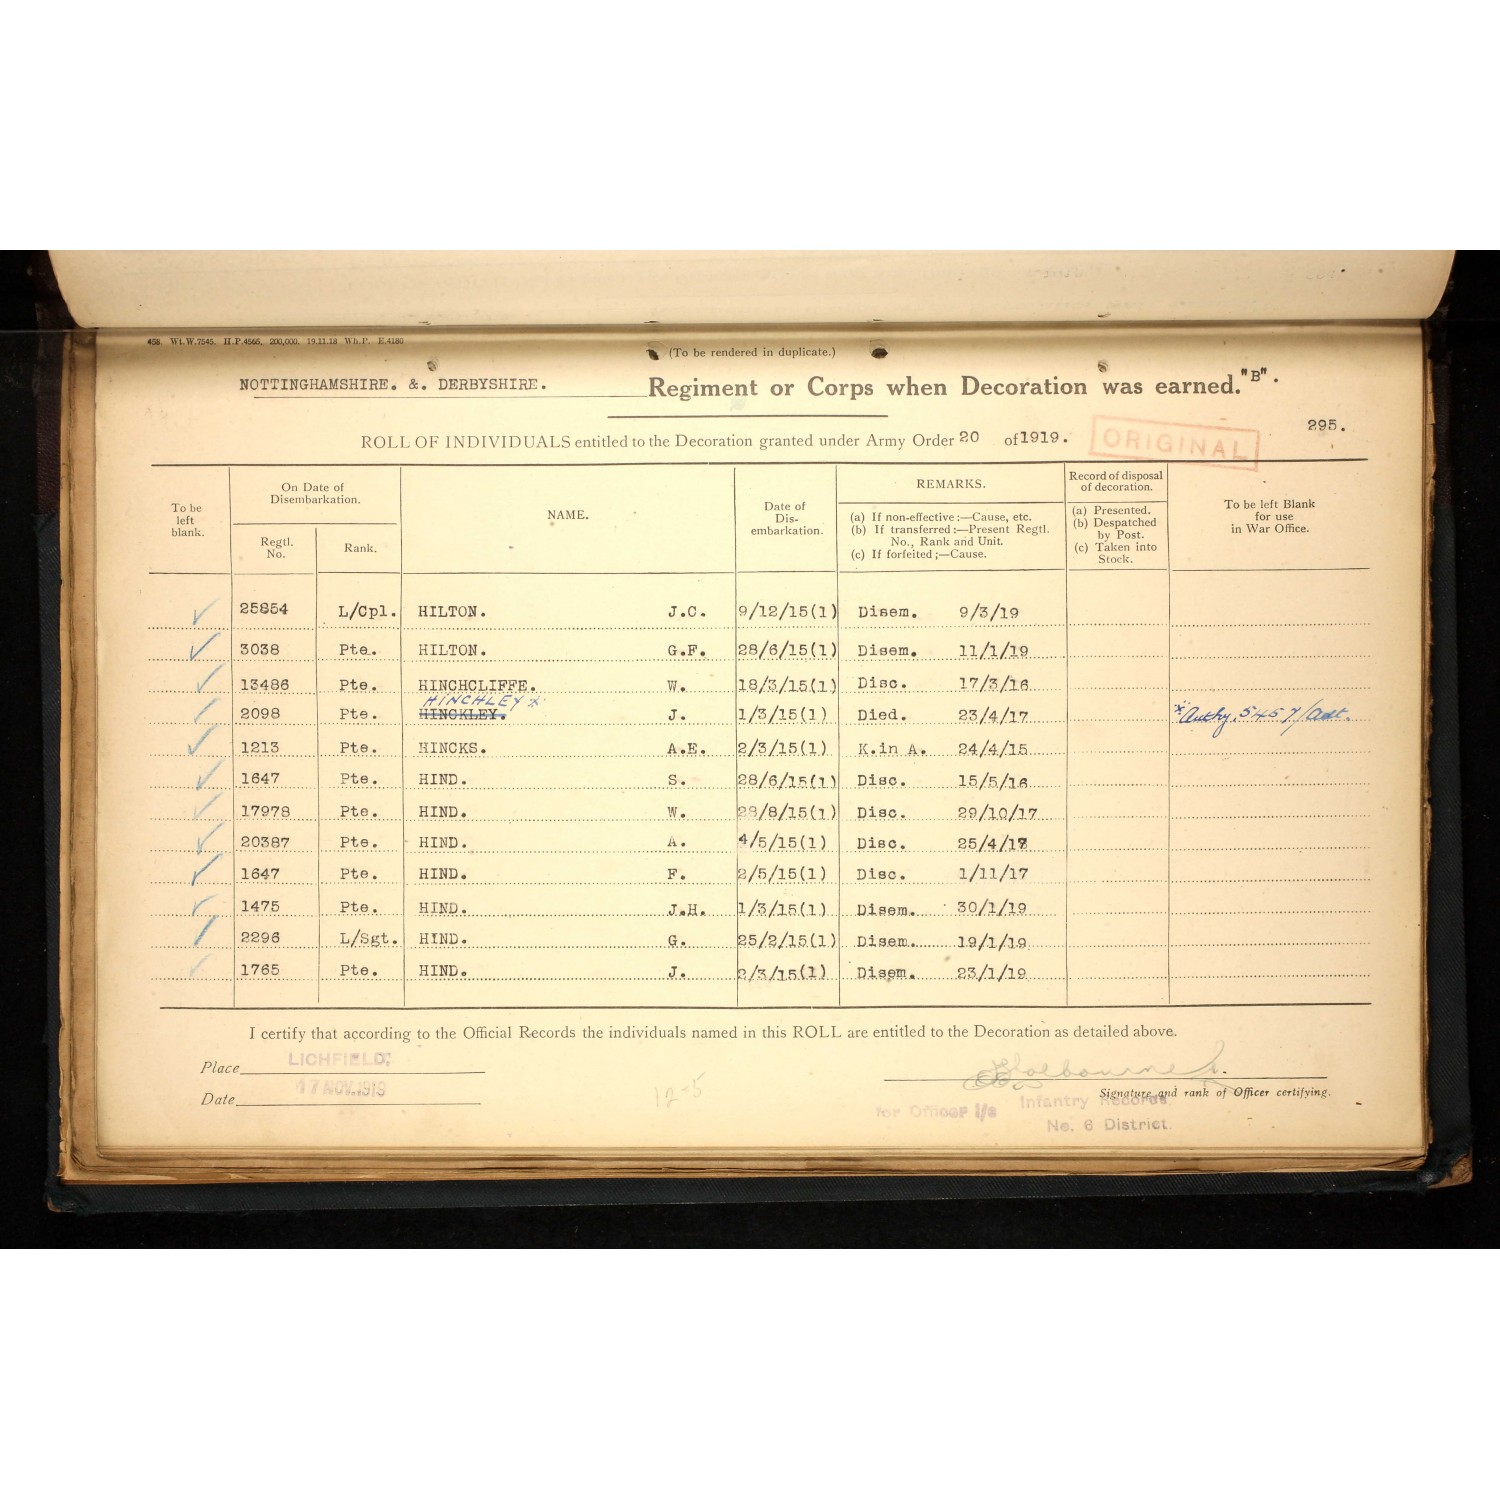 458 Wt.W.7545. H.P.4566. 200,000. 19.11.18 Wh.P. E.4180
(To be rendered in duplicate.)
NOTTINGHAMSHIRE. &. DERBYSHIRE. Regiment or Corps when Decoration was earned."B".
295.
ROLL OF INDIVIDUALS entitled to the Decoration granted under Army Order 20 of 1919.
ORIGINAL
To be left blank.
On Date of Disembarkation.
Regtl. No.
Rank.
NAME.
Date of Dis-embarkation.
REMARKS.
(a) If non-effective:—Cause, etc.
(b) If transferred:—Present Regtl. No., Rank and Unit.
(c) If forfeited;—Cause.
Record of disposal of decoration.
(a) Presented.
(b) Despatched by Post.
(c) Taken into Stock.
To be left Blank for use in War Office.
25854 L/Cpl. HILTON. J.C. 9/12/15(1) Disem. 9/3/19
3038 Pte. HILTON. G.F. 28/6/15(1) Disem. 11/1/19
13486 Pte. HINCHCLIFFE. W. 18/3/15(1) Disc. 17/3/16
HINCHLEY *
2098 Pte. HINCKLEY. J. 1/3/15(1) Died. 23/4/17 * Authy. 5457/Adt.
1213 Pte. HINCKS. A.E. 2/3/15(1) K.in A. 24/4/15
1647 Pte. HIND. S. 28/6/15(1) Disc. 15/5/16
17978 Pte. HIND. W. 28/8/15(1) Disc. 29/10/17
20387 Pte. HIND. A. 4/5/15(1) Disc. 25/4/18
1647 Pte. HIND. F. 2/5/15(1) Disc. 1/11/17
1475 Pte. HIND. J.H. 1/3/15(1) Disem. 30/1/19
2296 L/Sgt. HIND. G. 25/2/15(1) Disem. 19/1/19
1765 Pte. HIND. J. 2/3/15(1) Disem. 23/1/19
I certify that according to the Official Records the individuals named in this ROLL are entitled to the Decoration as detailed above.
Place LICHFIELD,
Date 17 NOV. 1919
12-5
Signature and rank of Officer certifying.
for Officer i/c Infantry Records.
No. 6 District